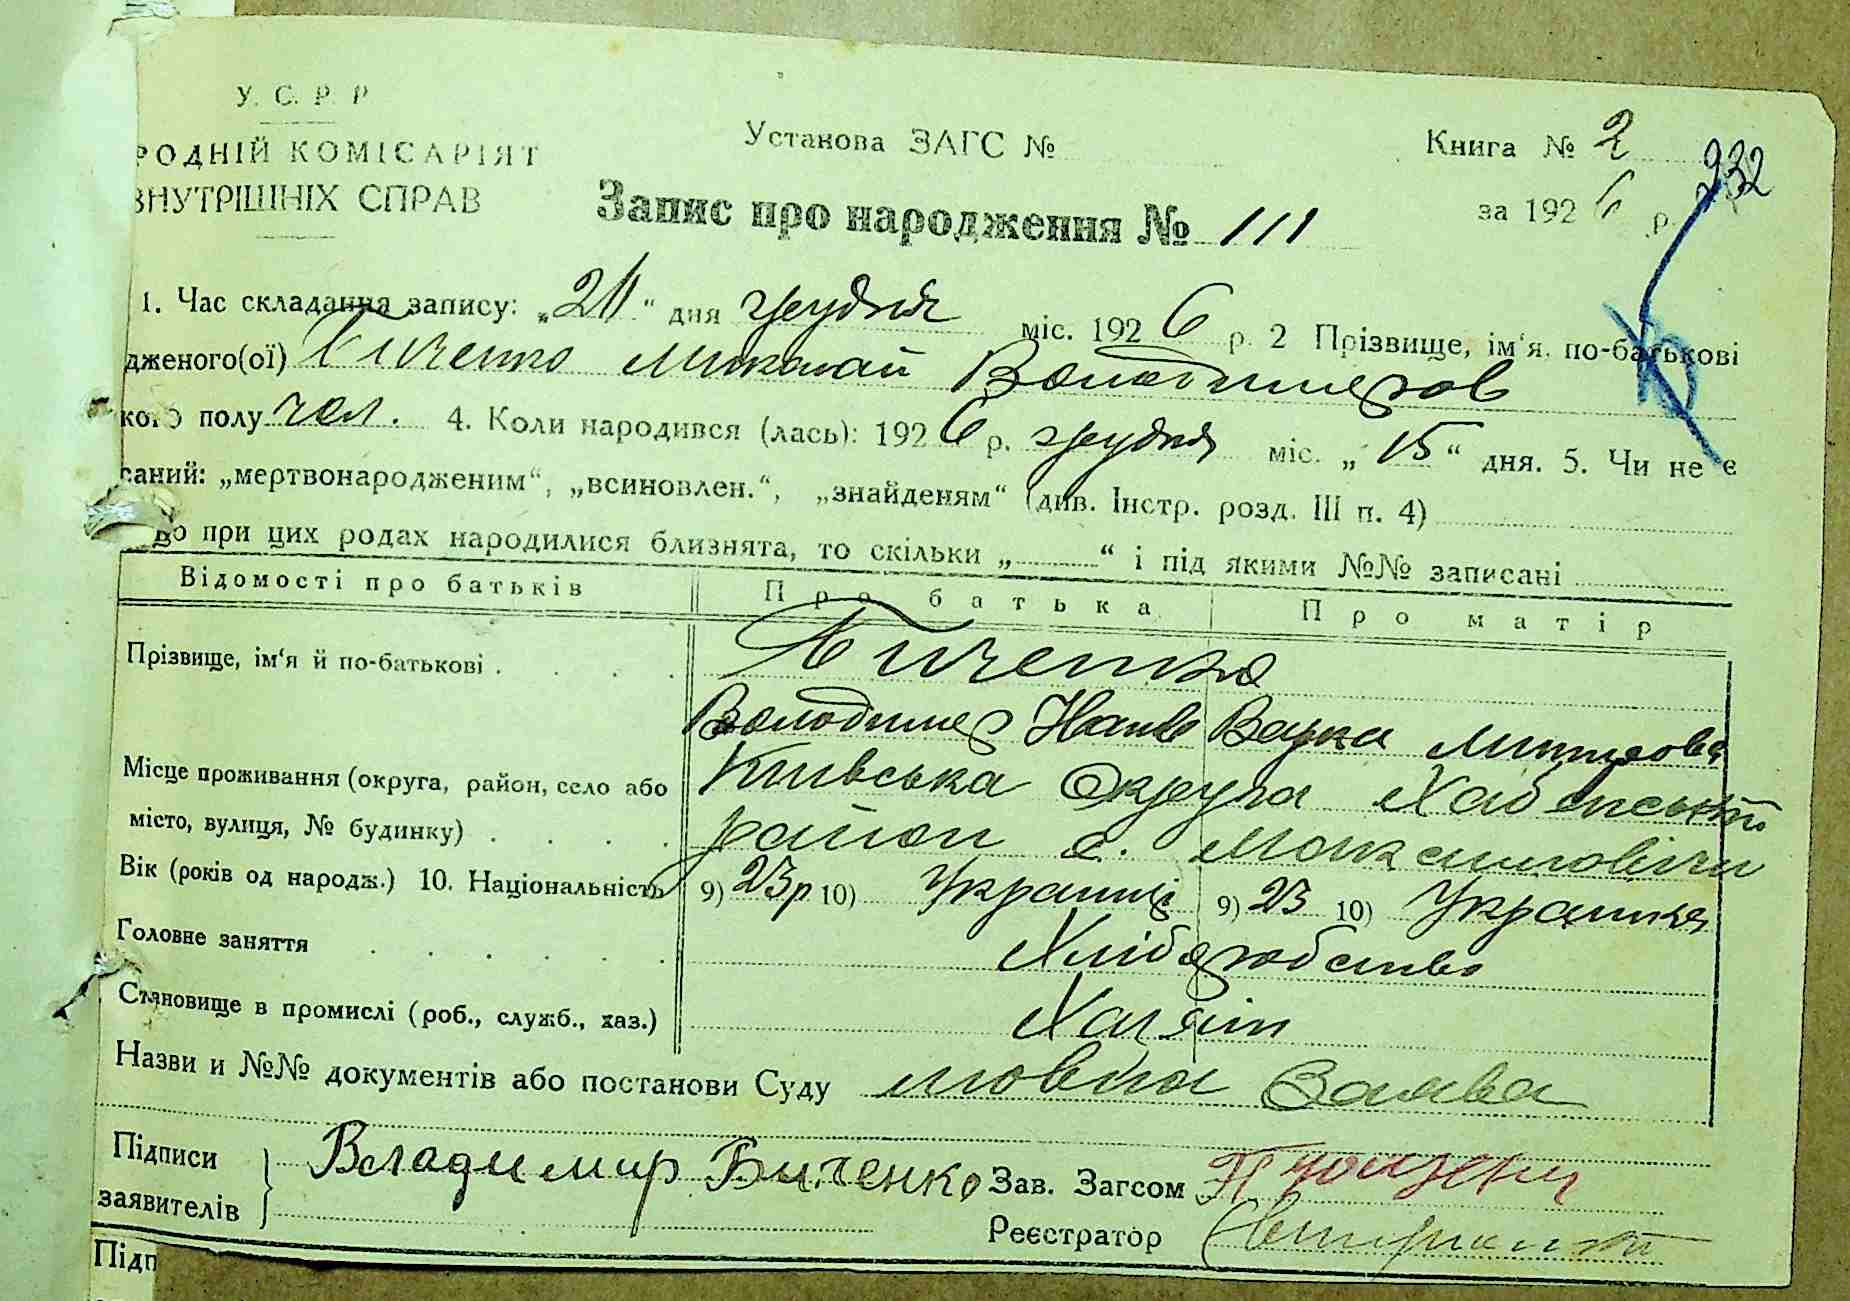 У. С. Р. Р
РОДНІЙ КОМІСАРІЯТ
ВНУТРІШНІХ СПРАВ
Установа ЗАГС №
Книга № 2
232
за 1926 р.
Запис про народження № 111
1. Час складання запису: „ “ дня грудня міс. 1926 р. 2 Прізвище, ім'я. по-батькові
дженого(ої) Биченко Миколай Володимеров
кого полу чол. 4. Коли народився (лась): 1926 р. грудня міс. „15“ дня. 5. Чи не є
саний: „мертвонародженим“, „всиновлен.“, „знайденям“ (див. Інстр. розд. III п. 4)
що при цих родах народилися близнята, то скільки „ “ і під якими №№ записані
Відомості про батьків Про батька Про матір
Прізвище, ім'я й по-батькові . . . . Биченко
Володимер Варка
Місце проживання (округа, район, село або Київська Округа Хабенський
місто, вулиця, № будинку) . . . . район с. Максимовичи
Вік (років од народж.) 10. Національність 9) 23р 10) Украинц 9) 23 10) Украинка
Головне заняття . . . . . . Хліборобство
Становище в промислі (роб., служб., хаз.) Хазяїн
Назви и №№ документів або постанови Суду мовна Заява
Підписи Владимир Биченко Зав. Загсом
заявителів
Реєстратор
Підп